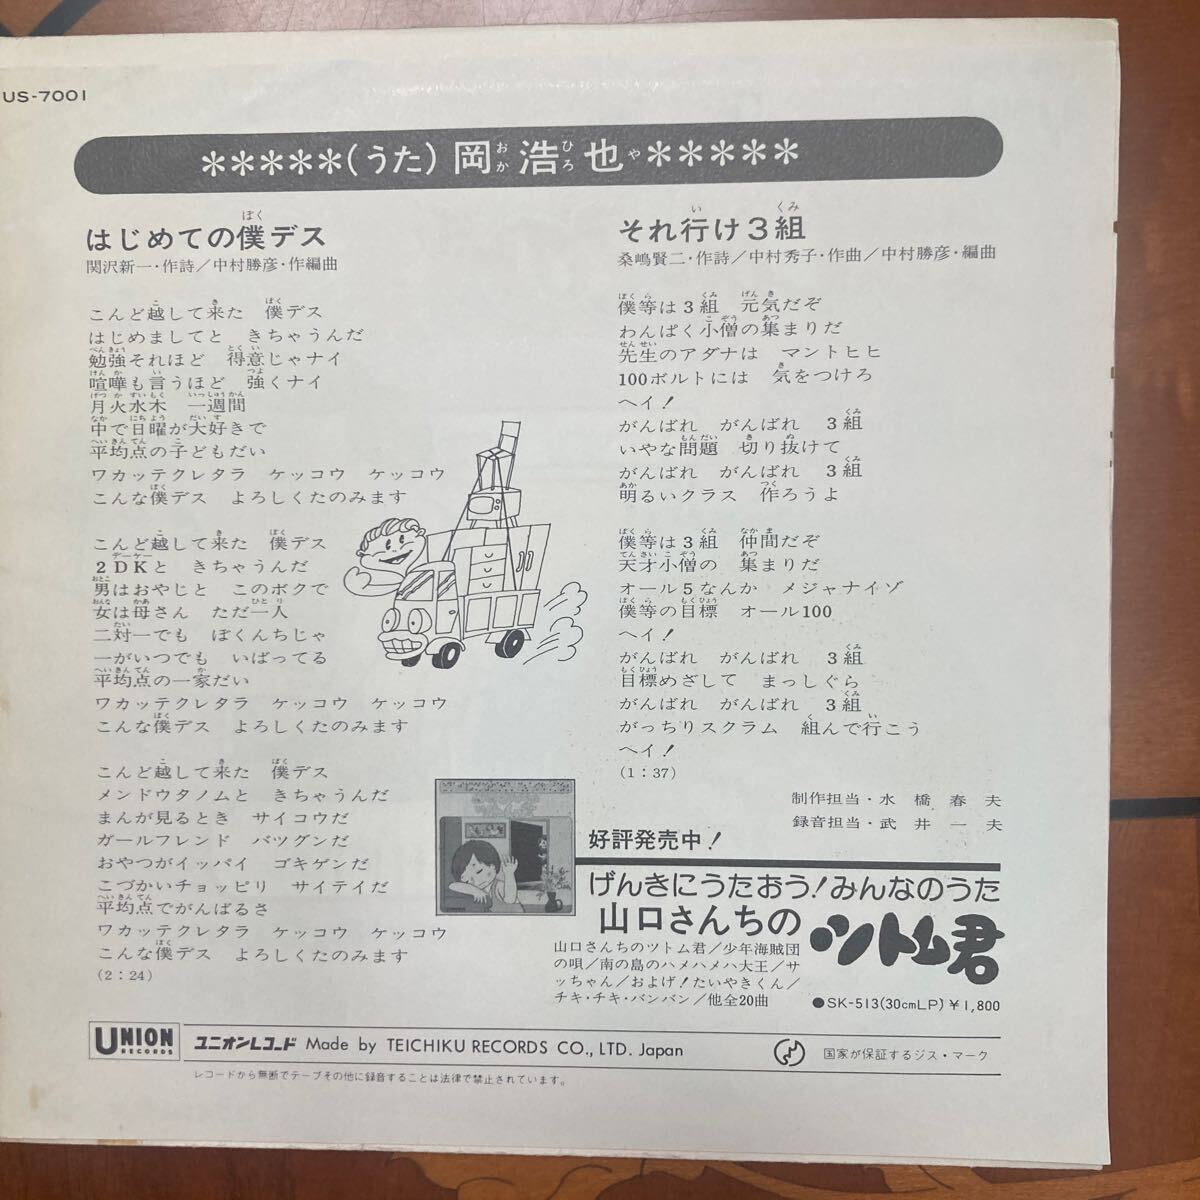 US-7001
*****(うた)岡浩也*****
おか ひろ や
ぼく
はじめての僕デス
関沢新一・作詩／中村勝彦・作編曲
こんど越して来た　僕デス
はじめましてと　きちゃうんだ
勉強それほど　得意じゃナイ
喧嘩も言うほど　強くナイ
月火水木　一週間
中で日曜が大好きで
平均点の子どもだい
ワカッテクレタラ　ケッコウ　ケッコウ
こんな僕デス　よろしくたのみます
こんど越して来た　僕デス
2DKと　きちゃうんだ
男はおやじと　このボクで
女は母さん　ただ一人
二対一でも　ぼくんちじゃ
一がいつでも　いばってる
平均点の一家だい
ワカッテクレタラ　ケッコウ　ケッコウ
こんな僕デス　よろしくたのみます
こんど越して来た　僕デス
メンドウタノムと　きちゃうんだ
まんが見るとき　サイコウだ
ガールフレンド　バツグンだ
おやつがイッパイ　ゴキゲンだ
こづかいチョッピリ　サイテイだ
平均点でがんばるさ
ワカッテクレタラ　ケッコウ　ケッコウ
こんな僕デス　よろしくたのみます
(2：24)
い　くみ
それ行け3組
桑嶋賢二・作詩／中村秀子・作曲／中村勝彦・編曲
僕等は3組　元気だぞ
わんぱく小僧の集まりだ
先生のアダナは　マントヒヒ
100ボルトには　気をつけろ
ヘイ！
がんばれ　がんばれ　3組
いやな問題　切り抜けて
がんばれ　がんばれ　3組
明るいクラス　作ろうよ
僕等は3組　仲間だぞ
天才小僧の　集まりだ
オール5なんか　メジャナイゾ
僕等の目標　オール100
ヘイ！
がんばれ　がんばれ　3組
目標めざして　まっしぐら
がんばれ　がんばれ　3組
がっちりスクラム　組んで行こう
ヘイ！
(1：37)
制作担当・水橋春夫
録音担当・武井一夫
好評発売中！
げんきにうたおう！みんなのうた
山口さんちのツトム君
山口さんちのツトム君／少年海賊団
の唄／南の島のハメハメハ大王／サ
ッちゃん／およげ！たいやきくん／
チキ・チキ・バンバン／他全20曲
●SK-513(30cmLP)￥1,800
UNION RECORDS
ユニオンレコード Made by TEICHIKU RECORDS CO., LTD. Japan
国家が保証するジス・マーク
レコードから無断でテープその他に録音することは法律で禁止されています。